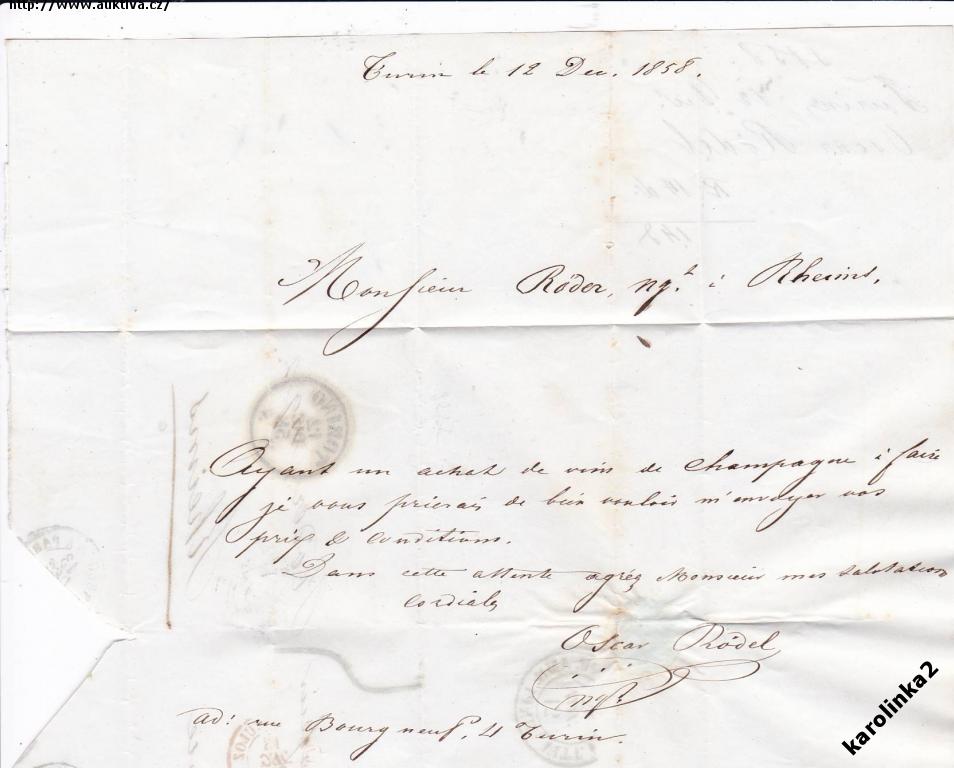 http://www.auktiva.cz/
Turin le 12 Dec. 1858.
Monsieur Röder, ngt. à Rheims,
Ayant un achat de vins de Champagne à faire
je vous prierais de bien vouloir m'envoyer vos
prix & conditions.
Dans cette attente agréez Monsieur mes salutations
cordiales
Oscar Rödel
ngt.
ad: rue Bourg neuf, 4 Turin.
karolinka2